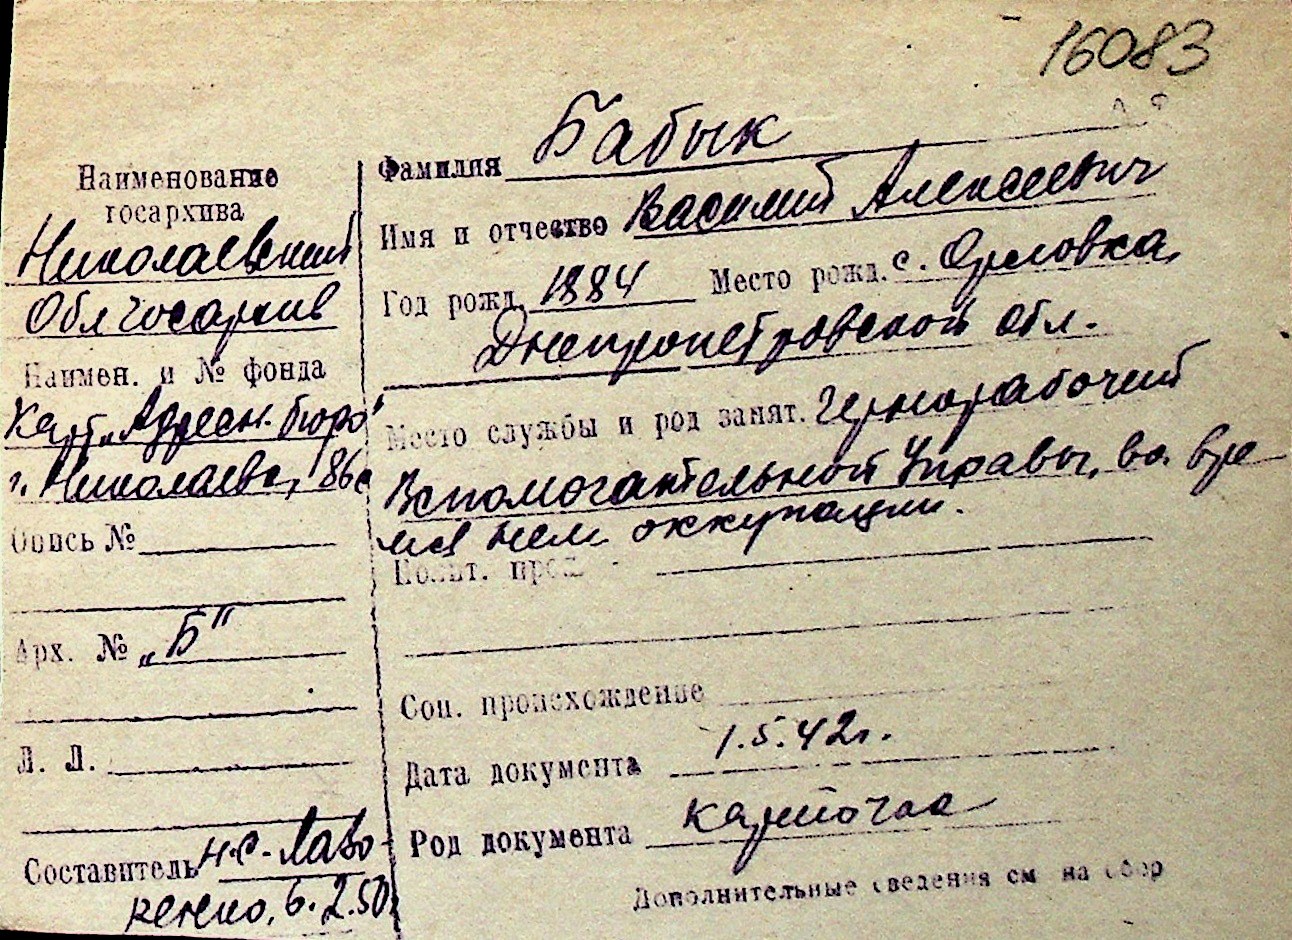 16083
Наименование
госархива
Николаевский
Облгосархив
Наимен. и № фонда
Карт. „Адресн. бюро"
г. Николаева, 86с
Опись №
Арх. № „Б"
Л. Л.
Составитель н.с. Лаво-
ренко, 6.2.50
Фамилия Бабык
Имя и отчество Василий Алексеевич
Год рожд. 1884 Место рожд. с. Орловка,
Днепропетровской обл.
Место службы и род занят. Чернорабочий
Вспомогательной Управы, во вре
мя нем оккупации.
Полит. прош
Соц. происхождение
Дата документа 1.5.42г.
Род документа карточка
Дополнительные сведения см на обор